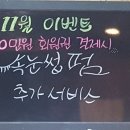 11월 이벤트
0만원 회원권 결제시
속눈썹 펌
추가 서비스